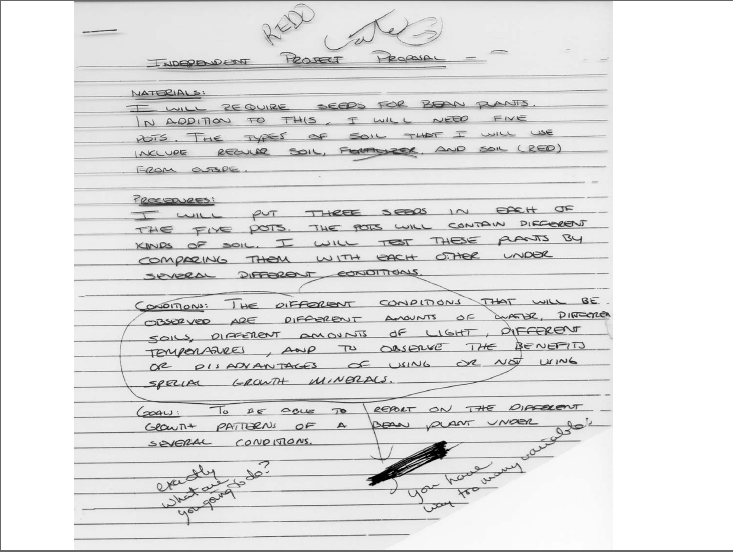 REDO
INDEPENDENT PROJECT PROPOSAL
MATERIALS:
I WILL REQUIRE SEEDS FOR BEAN PLANTS.
IN ADDITION TO THIS, I WILL NEED FIVE
POTS. THE TYPES OF SOIL THAT I WILL USE
INCLUDE REGULAR SOIL, FERTILIZER, AND SOIL (RED)
FROM OUTSIDE.
PROCEDURES:
I WILL PUT THREE SEEDS IN EACH OF
THE FIVE POTS. THE POTS WILL CONTAIN DIFFERENT
KINDS OF SOIL. I WILL TEST THESE PLANTS BY
COMPARING THEM WITH EACH OTHER UNDER
SEVERAL DIFFERENT CONDITIONS.
CONDITIONS: THE DIFFERENT CONDITIONS THAT WILL BE
OBSERVED ARE DIFFERENT AMOUNTS OF WATER, DIFFEREN
SOILS, DIFFERENT AMOUNTS OF LIGHT, DIFFERENT
TEMPERATURES, AND TO OBSERVE THE BENEFITS
OR DISADVANTAGES OF USING OR NOT USING
SPECIAL GROWTH MINERALS.
GOALS: TO BE ABLE TO REPORT ON THE DIFFERENT
GROWTH PATTERNS OF A BEAN PLANT UNDER
SEVERAL CONDITIONS.
exactly
what are
you going to do?
you have
way too many variables